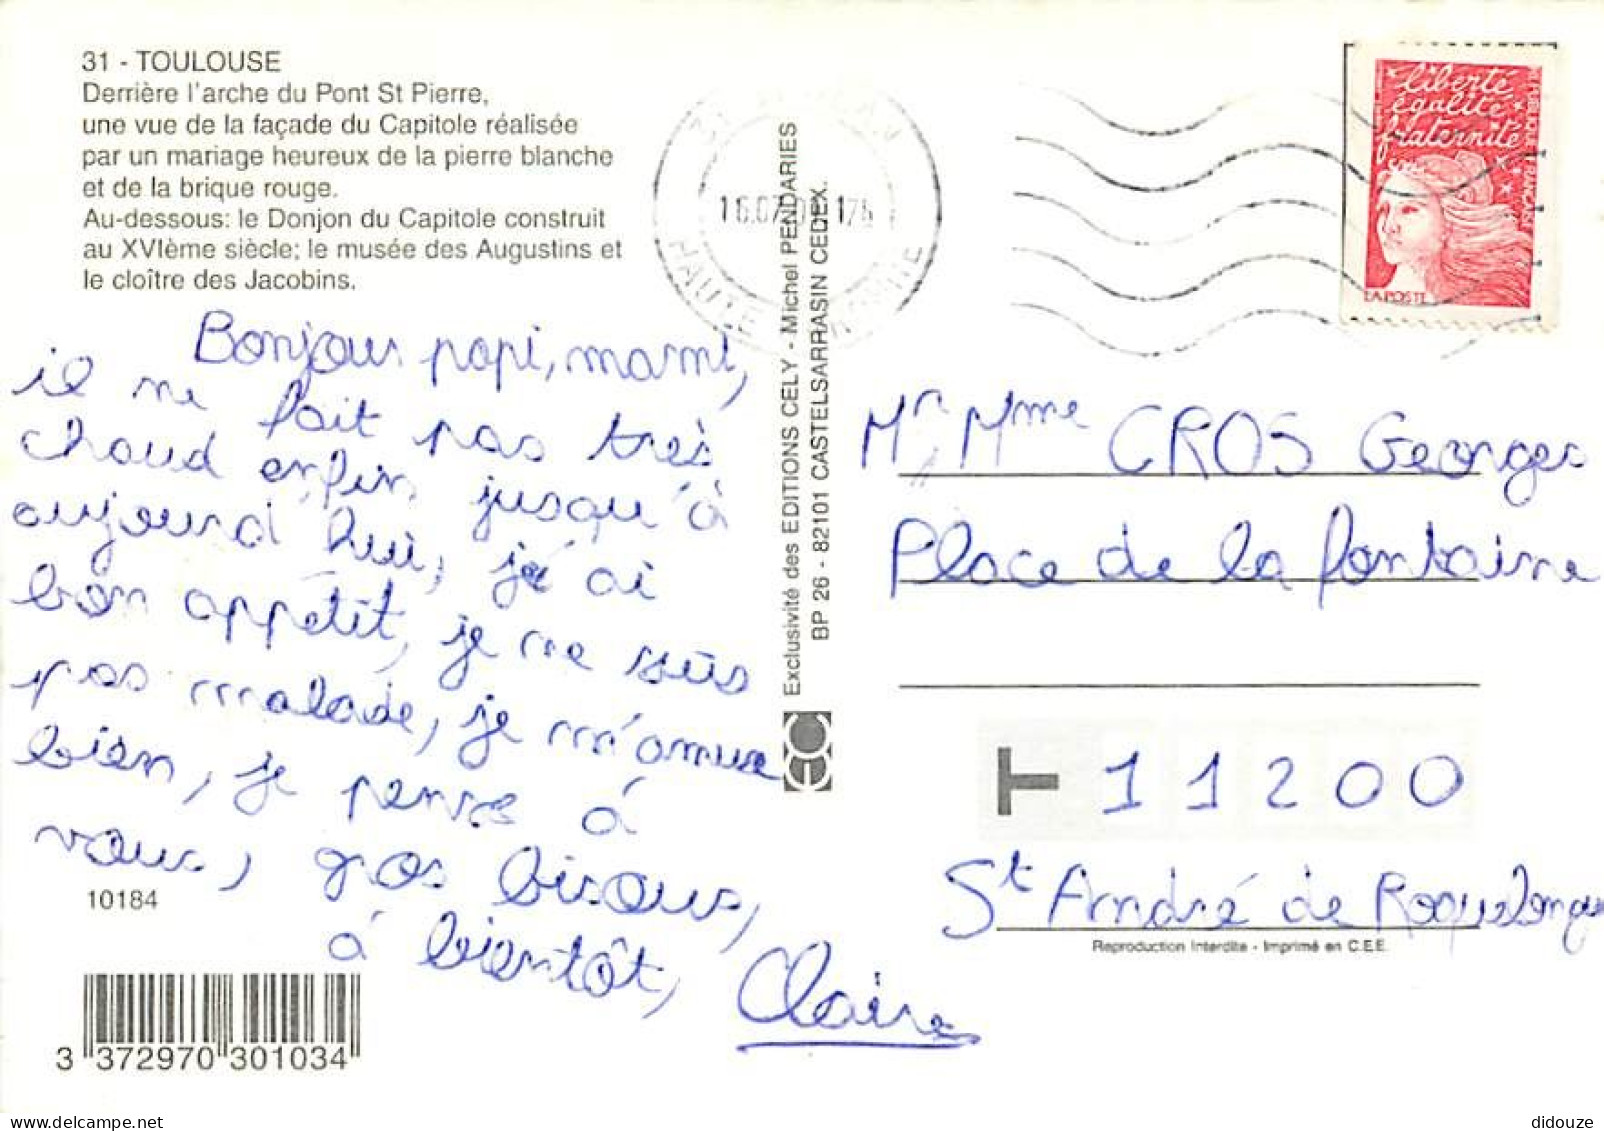 31 - TOULOUSE
Derrière l'arche du Pont St Pierre,
une vue de la façade du Capitole réalisée
par un mariage heureux de la pierre blanche
et de la brique rouge.
Au-dessous: le Donjon du Capitole construit
au XVIème siècle; le musée des Augustins et
le cloître des Jacobins.
Bonjour papi, mami,
il ne fait pas très
chaud enfin jusqu'à
aujourd'hui, j'ai
bon appétit, je ne suis
pas malade, je m'amuse
bien, je pense à
vous, gros bisous,
à bientôt,
Claire
10184
3 372970 301034
Exclusivité des EDITIONS CELY - Michel PENDARIES
BP 26 - 82101 CASTELSARRASIN CEDEX.
HAUTE
liberté
égalité
fraternité
LA POSTE
Mr, Mme CROS Georges
Place de la fontaine
11200
St André de Roquelongue
Reproduction Interdite - Imprimé en C.E.E.
didouze